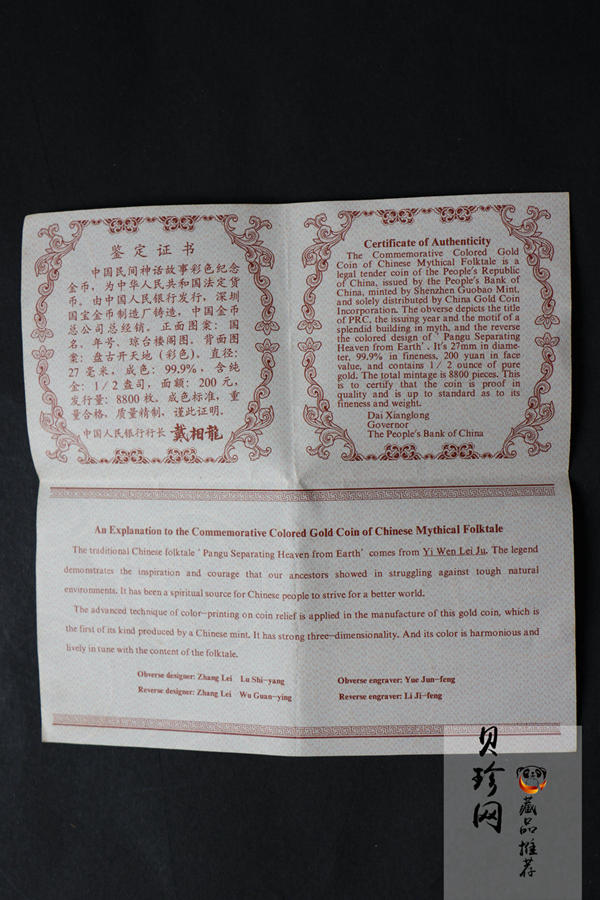 鉴定证书
中国民间神话故事彩色纪念
金币，为中华人民共和国法定货
币。由中国人民银行发行，深圳
国宝金币制造厂铸造，中国金币
总公司总经销。正面图案：国
名、年号、琼台楼阁图，背面图
案：盘古开天地（彩色）。直径：
27毫米，成色：99.9%，含纯
金：1/2盎司，面额：200元，
发行量：8800枚。成色标准，重
量合格，质量精制，谨此证明。
中国人民银行行长 戴相龍
Certificate of Authenticity
The Commemorative Colored Gold
Coin of Chinese Mythical Folktale is a
legal tender coin of the People's Republic
of China, issued by the People's Bank of
China, minted by Shenzhen Guobao Mint,
and solely distributed by China Gold Coin
Incorporation. The obverse depicts the title
of PRC, the issuing year and the motif of a
splendid building in myth, and the reverse
the colored design of ' Pangu Separating
Heaven from Earth' . It's 27mm in diame-
ter, 99.9% in fineness, 200 yuan in face
value, and contains 1/2 ounce of pure
gold. The total mintage is 8800 pieces. This
is to certify that the coin is proof in
quality and is up to standard as to its
fineness and weight.
Dai Xianglong
Governor
The People's Bank of China
An Explanation to the Commemorative Colored Gold Coin of Chinese Mythical Folktale
The traditional Chinese folktale ' Pangu Separating Heaven from Earth' comes from Yi Wen Lei Ju. The legend
demonstrates the inspiration and courage that our ancestors showed in struggling against tough natural
environments. It has been a spiritual source for Chinese people to strive for a better world.
The advanced technique of color-printing on coin relief is applied in the manufacture of this gold coin, which is
the first of its kind produced by a Chinese mint. It has strong three-dimensionality. And its color is harmonious and
lively in tune with the content of the folktale.
Obverse designer: Zhang Lei Lu Shi-yang
Obverse engraver: Yue Jun-feng
Reverse designer: Zhang Lei Wu Guan-ying
Reverse engraver: Li Ji-feng
贝珍网
藏品推荐